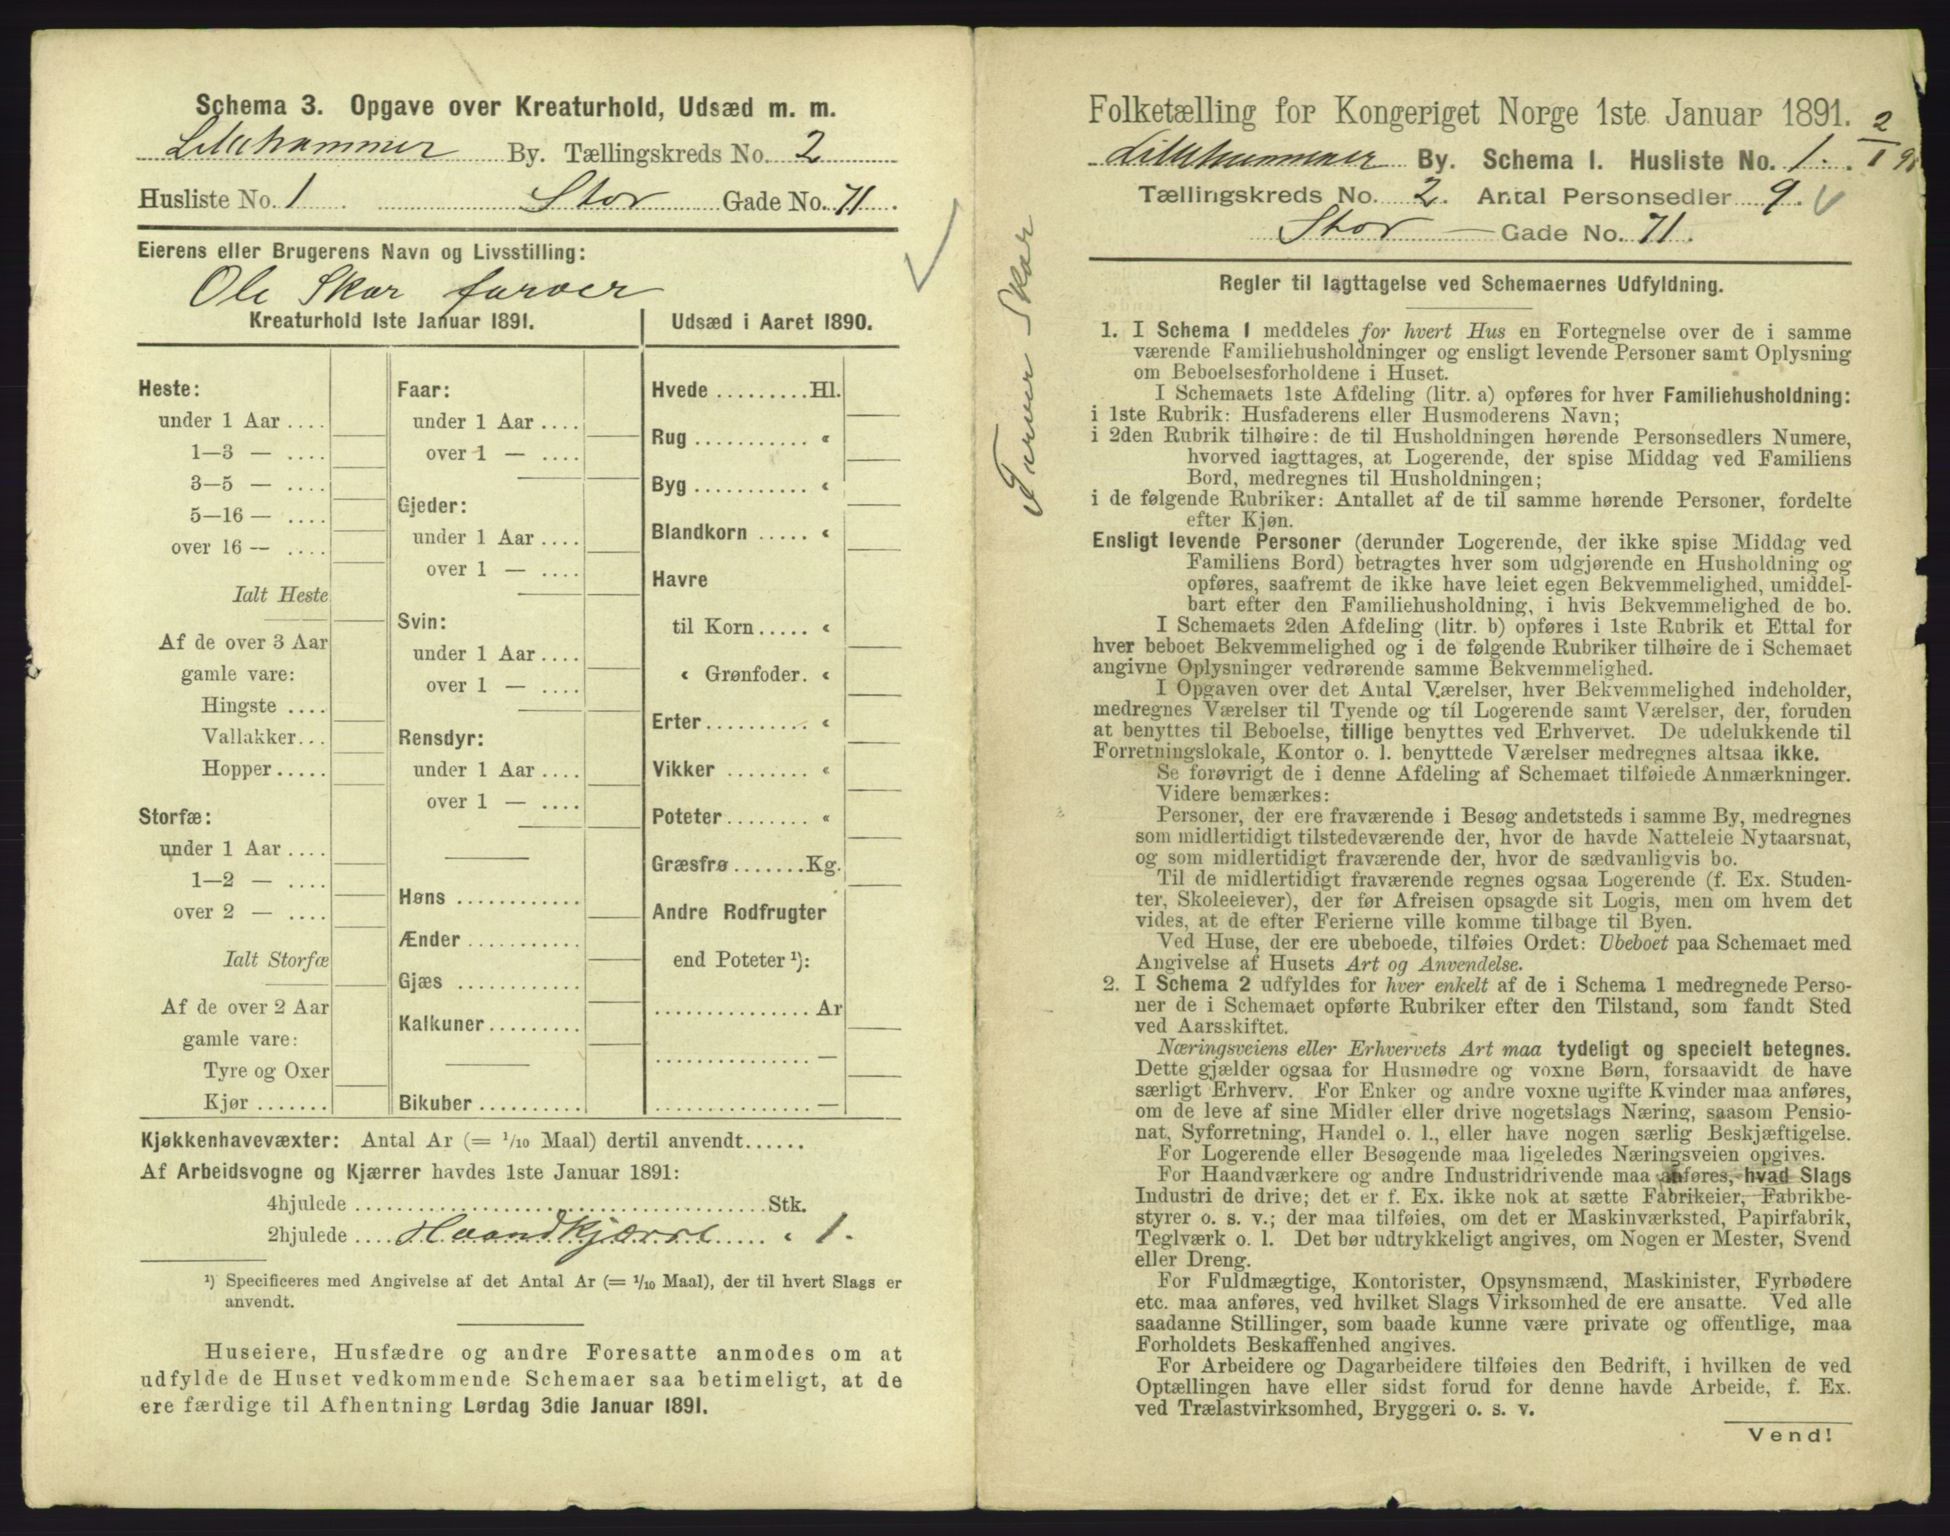 Schema 3. Opgave over Kreaturhold, Udsæd m. m.
Lillehammer By. Tællingskreds No. 2
Husliste No. 1. Stor Gade No. 71.
Eierens eller Brugerens Navn og Livsstilling:
Ole Skar farver
Kreaturhold 1ste Januar 1891.
Heste:
under 1 Aar ....
1—3 — ....
3—5 — ....
5—16 — ....
over 16 — ....
Ialt Heste
Af de over 3 Aar
gamle vare:
Hingste ....
Vallakker...
Hopper.....
Storfæ:
under 1 Aar ....
1—2 — ....
over 2 — ....
Ialt Storfæ
Af de over 2 Aar
gamle vare:
Tyre og Oxer
Kjør .......
Faar:
under 1 Aar ....
over 1 — ....
Gjeder:
under 1 Aar ....
over 1 — ....
Svin:
under 1 Aar ....
over 1 — ....
Rensdyr:
under 1 Aar ....
over 1 — ....
Høns ............
Ænder ...........
Gjæs ............
Kalkuner.........
Bikuber..........
Udsæd i Aaret 1890.
Hvede .........Hl.
Rug ........... «
Byg ........... «
Blandkorn ..... «
Havre
til Korn..... «
« Grønfoder. «
Erter.......... «
Vikker ........ «
Poteter........ «
Græsfrø.......Kg.
Andre Rodfrugter
end Poteter ¹):
............... Ar
............... —
............... —
Kjøkkenhavevæxter: Antal Ar (= 1/10 Maal) dertil anvendt......
Af Arbeidsvogne og Kjærrer havdes 1ste Januar 1891:
4hjulede ........................................Stk.
2hjulede .... Haandkjærre ..... « 1.
¹) Specificeres med Angivelse af det Antal Ar (= 1/10 Maal), der til hvert Slags er
anvendt.
Huseiere, Husfædre og andre Foresatte anmodes om at
udfylde de Huset vedkommende Schemaer saa betimeligt, at de
ere færdige til Afhentning Lørdag 3die Januar 1891.
Farver Skar
Folketælling for Kongeriget Norge 1ste Januar 1891.
Lillehammer By. Schema 1. Husliste No. 1.
2/1 91
Tællingskreds No. 2. Antal Personsedler 9.
Stor — Gade No. 71.
Regler til Iagttagelse ved Schemaernes Udfyldning.
1. I Schema 1 meddeles for hvert Hus en Fortegnelse over de i samme
værende Familiehusholdninger og ensligt levende Personer samt Oplysning
om Beboelsesforholdene i Huset.
I Schemaets 1ste Afdeling (litr. a) opføres for hver Familiehusholdning:
i 1ste Rubrik: Husfaderens eller Husmoderens Navn;
i 2den Rubrik tilhøire: de til Husholdningen hørende Personsedlers Numere,
hvorved iagttages, at Logerende, der spise Middag ved Familiens
Bord, medregnes til Husholdningen;
i de følgende Rubriker: Antallet af de til samme hørende Personer, fordelte
efter Kjøn.
Ensligt levende Personer (derunder Logerende, der ikke spise Middag ved
Familiens Bord) betragtes hver som udgjørende en Husholdning og
opføres, saafremt de ikke have leiet egen Bekvemmelighed, umiddel-
bart efter den Familiehusholdning, i hvis Bekvemmelighed de bo.
I Schemaets 2den Afdeling (litr. b) opføres i 1ste Rubrik et Ettal for
hver beboet Bekvemmelighed og i de følgende Rubriker tilhøire de i Schemaet
angivne Oplysninger vedrørende samme Bekvemmelighed.
I Opgaven over det Antal Værelser, hver Bekvemmelighed indeholder,
medregnes Værelser til Tyende og til Logerende samt Værelser, der, foruden
at benyttes til Beboelse, tillige benyttes ved Erhvervet. De udelukkende til
Forretningslokale, Kontor o. l. benyttede Værelser medregnes altsaa ikke.
Se forøvrigt de i denne Afdeling af Schemaet tilføiede Anmærkninger.
Videre bemærkes:
Personer, der ere fraværende i Besøg andetsteds i samme By, medregnes
som midlertidigt tilstedeværende der, hvor de havde Natteleie Nytaarsnat,
og som midlertidigt fraværende der, hvor de sædvanligvis bo.
Til de midlertidigt fraværende regnes ogsaa Logerende (f. Ex. Studen-
ter, Skoleelever), der før Afreisen opsagde sit Logis, men om hvem det
vides, at de efter Ferierne ville komme tilbage til Byen.
Ved Huse, der ere ubeboede, tilføies Ordet: Ubeboet paa Schemaet med
Angivelse af Husets Art og Anvendelse.
2. I Schema 2 udfyldes for hver enkelt af de i Schema 1 medregnede Perso-
ner de i Schemaet opførte Rubriker efter den Tilstand, som fandt Sted
ved Aarsskiftet.
Næringsveiens eller Erhvervets Art maa tydeligt og specielt betegnes.
Dette gjælder ogsaa for Husmødre og voxne Børn, forsaavidt de have
særligt Erhverv. For Enker og andre voxne ugifte Kvinder maa anføres,
om de leve af sine Midler eller drive nogetslags Næring, saasom Pensio-
nat, Syforretning, Handel o. l., eller have nogen særlig Beskjæftigelse.
For Logerende eller Besøgende maa ligeledes Næringsveien opgives.
For Haandværkere og andre Industridrivende maa anføres, hvad Slags
Industri de drive; det er f. Ex. ikke nok at sætte Fabrikeier, Fabrikbe-
styrer o. s. v.; der maa tilføies, om det er Maskinværksted, Papirfabrik,
Teglværk o. l. Det bør udtrykkeligt angives, om Nogen er Mester, Svend
eller Dreng.
For Fuldmægtige, Kontorister, Opsynsmænd, Maskinister, Fyrbødere
etc. maa anføres, ved hvilket Slags Virksomhed de ere ansatte. Ved alle
saadanne Stillinger, som baade kunne være private og offentlige, maa
Forholdets Beskaffenhed angives.
For Arbeidere og Dagarbeidere tilføies den Bedrift, i hvilken de ved
Optællingen have eller sidst forud for denne havde Arbeide, f. Ex.
ved Trælastvirksomhed, Bryggeri o. s. v.
Vend!